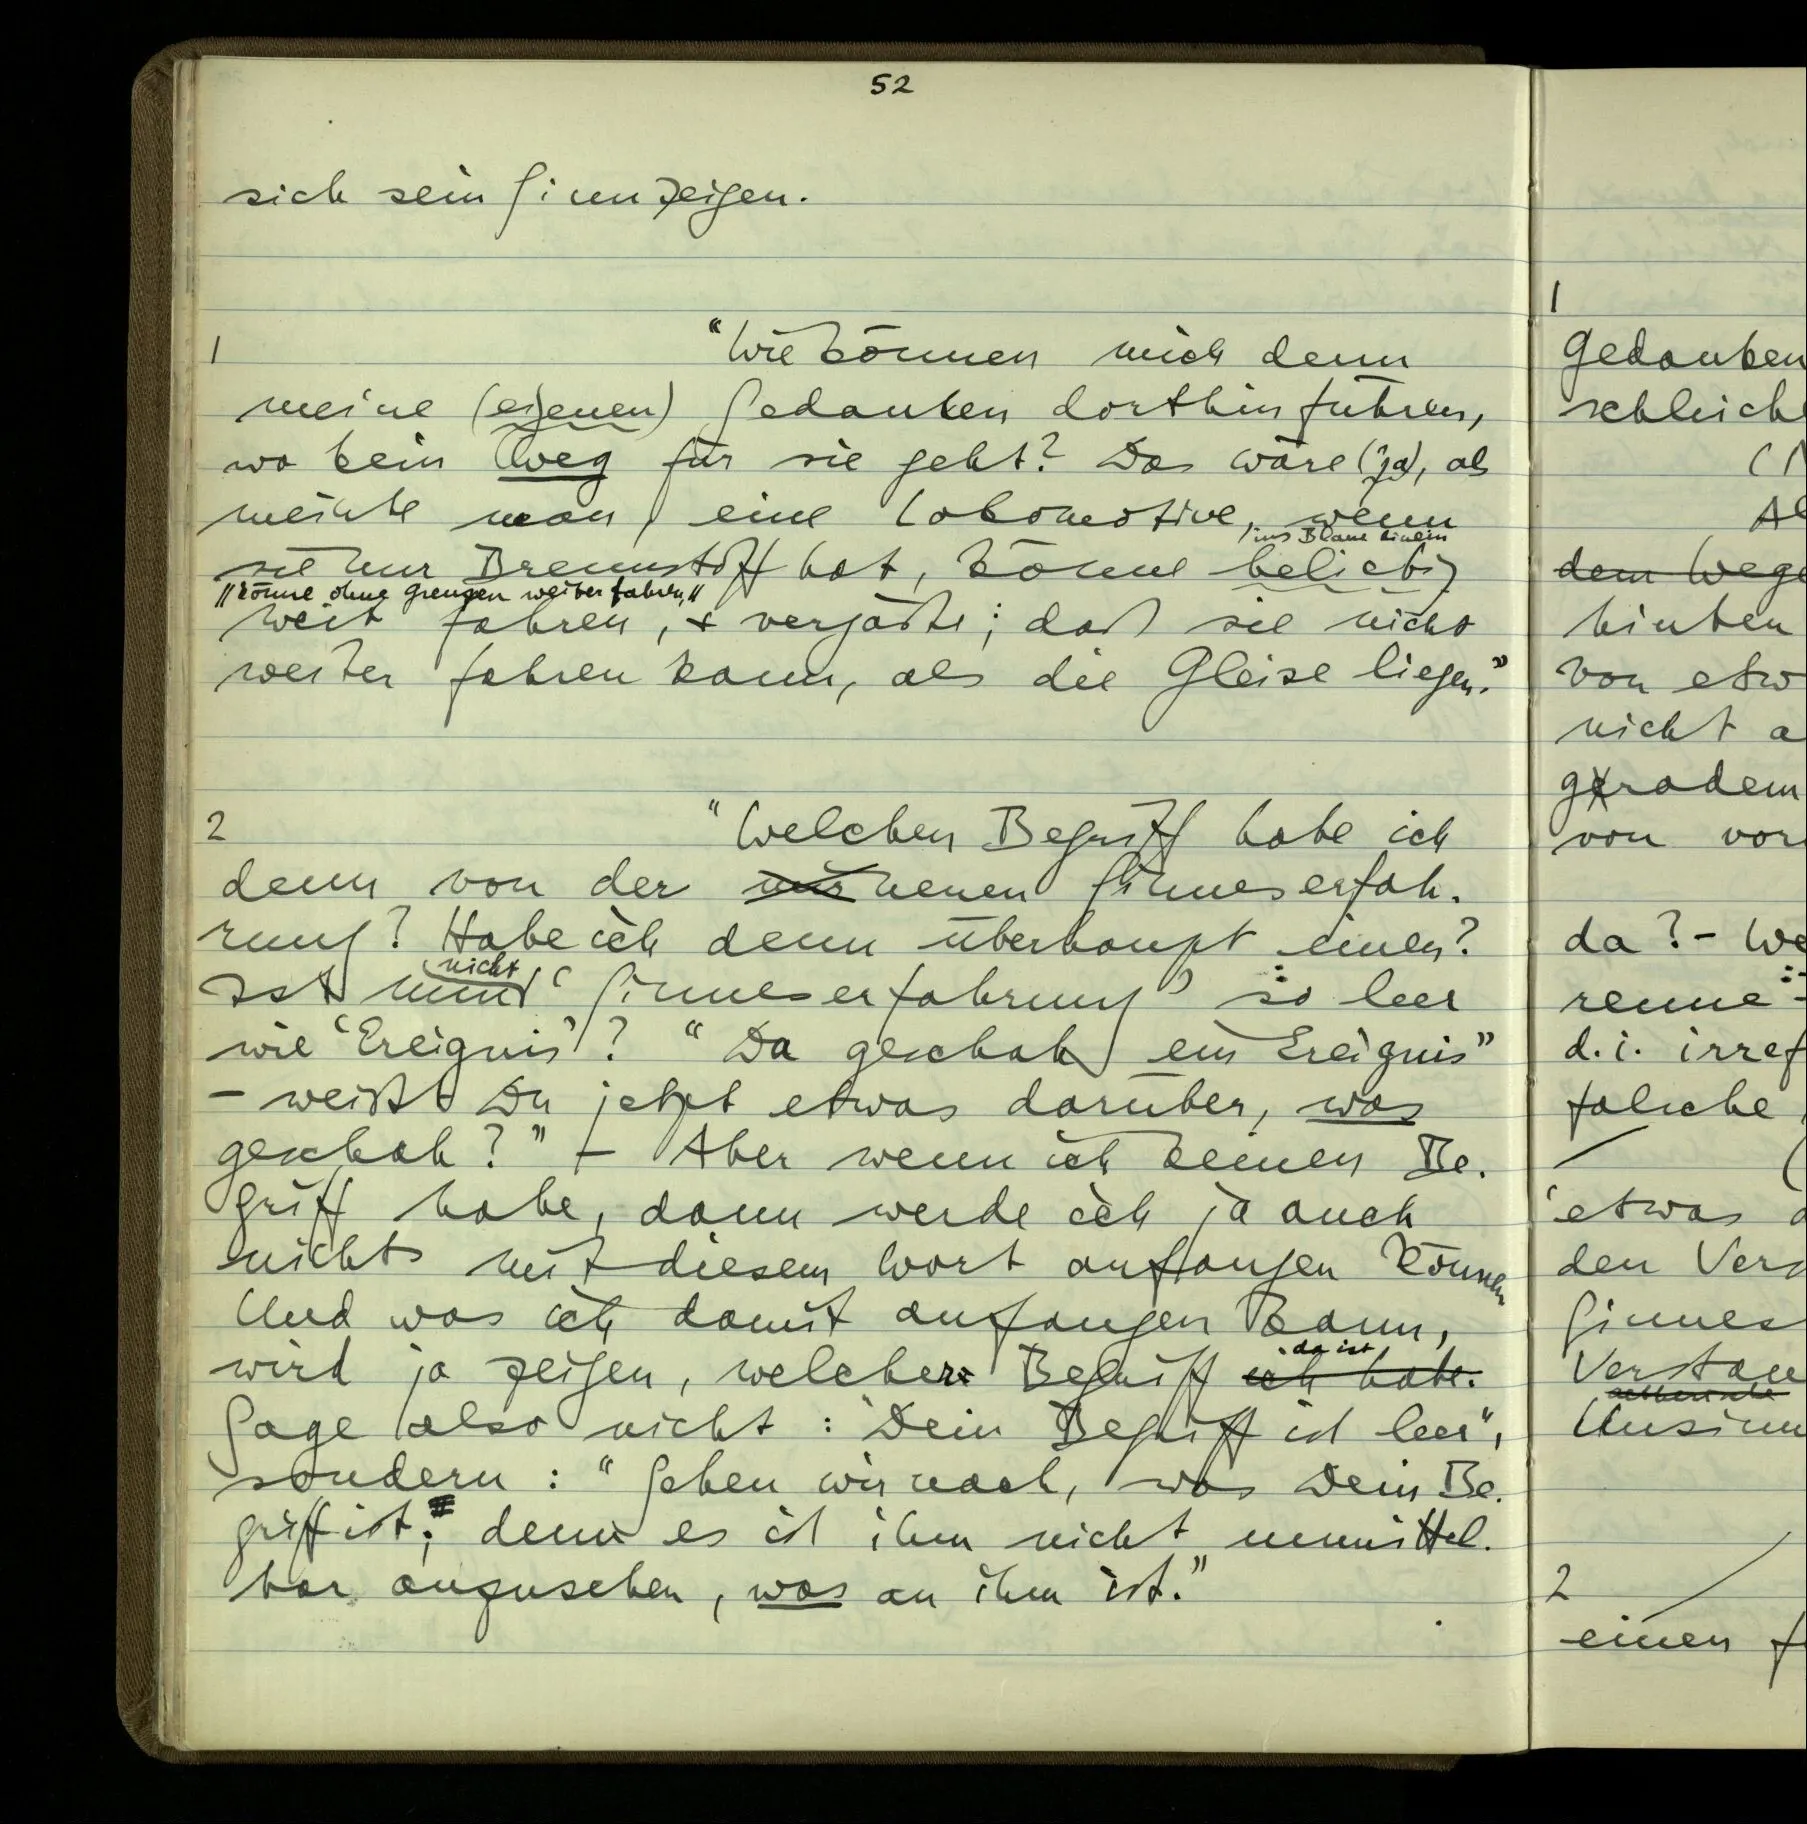 52
sich sein Sinn zeigen.
1 "Wie können mich denn
meine (eigenen) Gedanken dorthin führen,
wo kein Weg für sie geht? Das wäre (ja), als
meinte man, eine Lokomotive, wenn
ins Blaue hinein
sie nur Brennstoff hat, könne beliebig
"könne ohne Grenzen weiterfahren"
weit fahren, & vergäße; daß sie nicht
weiter fahren kann, als die Gleise liegen."
2 "Welchen Begriff habe ich
denn von der neuen Sinneserfah-
rung? Habe ich denn überhaupt einen?
nicht
Ist 'Sinneserfahrung' so leer
wie 'Ereignis'? "Da geschah ein Ereignis"
– weißt Du jetzt etwas darüber, was
geschah?" – Aber wenn ich keinen Be-
griff habe, dann werde ich ja auch
nichts mit diesem Wort anfangen können
Und was ich damit anfangen kann,
da ist
wird ja zeigen, welcher Begriff ich habe.
Sage also nicht: "Dein Begriff ist leer",
sondern: "Sehen wir nach, was Dein Be-
griff ist; denn es ist ihm nicht unmittel-
bar anzusehen, was an ihm ist."
1
Gedanken
schleich
dem Wege
hinten
von etw
nicht a
geradem
von vor
da? – We
renne
d.i. irref
falsche
'etwas
den Vers
Sinnes
Verstan
Unsinn
2
einen f